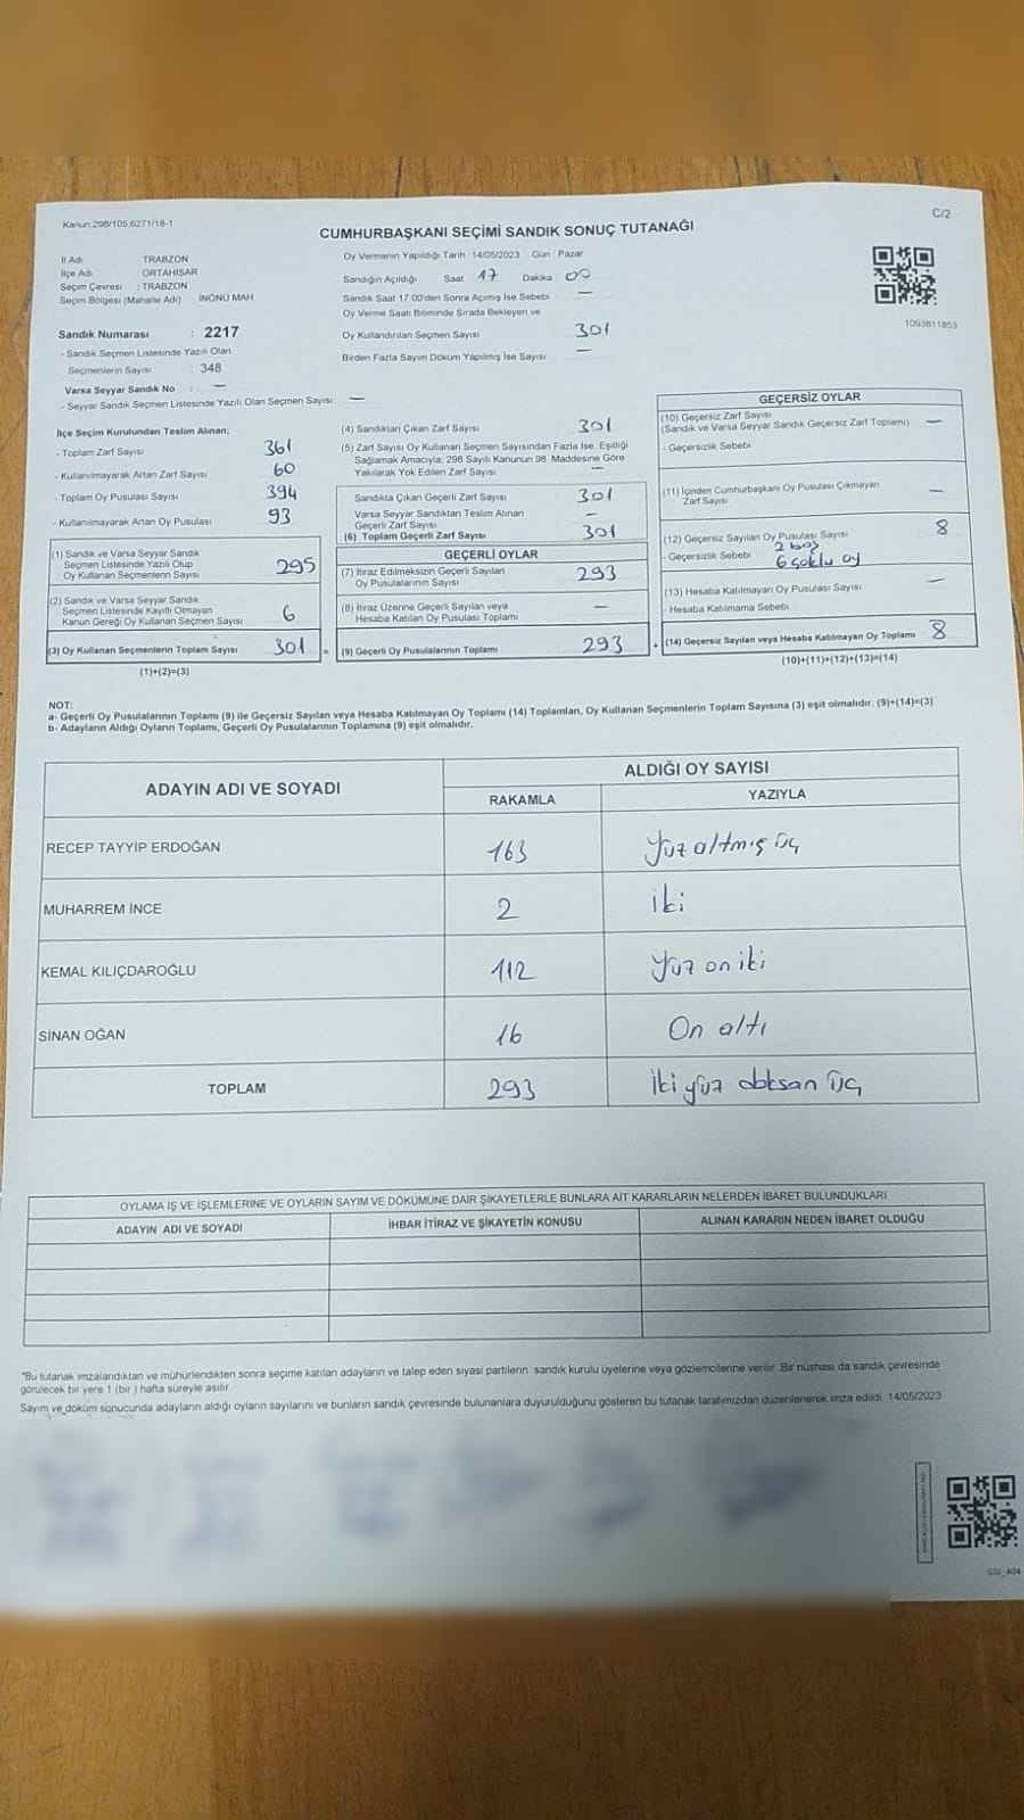 Kanun:298/105,6271/18-1
C/2
CUMHURBAŞKANI SEÇİMİ SANDIK SONUÇ TUTANAĞI
İl Adı TRABZON
İlçe Adı ORTAHİSAR
Seçim Çevresi : TRABZON
Seçim Bölgesi (Mahalle Adı) İNÖNÜ MAH
Sandık Numarası : 2217
- Sandık Seçmen Listesinde Yazılı Olan
Seçmenlerin Sayısı : 348
Varsa Seyyar Sandık No : —
- Seyyar Sandık Seçmen Listesinde Yazılı Olan Seçmen Sayısı —
Oy Vermenin Yapıldığı Tarih 14/05/2023 Gün : Pazar
Sandığın Açıldığı Saat 17 Dakika 00
Sandık Saat 17:00'den Sonra Açılmış İse Sebebi —
Oy Verme Saati Bitiminde Sırada Bekleyen ve
Oy Kullandırılan Seçmen Sayısı 301
Birden Fazla Sayım Döküm Yapılmış İse Sayısı —
1093811853
İlçe Seçim Kurulundan Teslim Alınan;
- Toplam Zarf Sayısı 361
- Kullanılmayarak Artan Zarf Sayısı 60
- Toplam Oy Pusulası Sayısı 394
- Kullanılmayarak Artan Oy Pusulası 93
(1) Sandık ve Varsa Seyyar Sandık
Seçmen Listesinde Yazılı Olup
Oy Kullanan Seçmenlerin Sayısı 295
(2) Sandık ve Varsa Seyyar Sandık
Seçmen Listesinde Kayıtlı Olmayan
Kanun Gereği Oy Kullanan Seçmen Sayısı 6
(3) Oy Kullanan Seçmenlerin Toplam Sayısı 301 =
(1)+(2)=(3)
(4) Sandıktan Çıkan Zarf Sayısı 301
(5) Zarf Sayısı Oy Kullanan Seçmen Sayısından Fazla İse, Eşitliği
Sağlamak Amacıyla, 298 Sayılı Kanunun 98. Maddesine Göre
Yakılarak Yok Edilen Zarf Sayısı —
Sandıkta Çıkan Geçerli Zarf Sayısı 301
Varsa Seyyar Sandıktan Teslim Alınan
Geçerli Zarf Sayısı —
(6) Toplam Geçerli Zarf Sayısı 301
GEÇERLİ OYLAR
(7) İtiraz Edilmeksizin Geçerli Sayılan
Oy Pusulalarının Sayısı 293
(8) İtiraz Üzerine Geçerli Sayılan veya
Hesaba Katılan Oy Pusulası Toplamı —
(9) Geçerli Oy Pusulalarının Toplamı 293 +
GEÇERSİZ OYLAR
(10) Geçersiz Zarf Sayısı
(Sandık ve Varsa Seyyar Sandık Geçersiz Zarf Toplamı) —
- Geçersizlik Sebebi
(11) İçinden Cumhurbaşkanı Oy Pusulası Çıkmayan
Zarf Sayısı —
(12) Geçersiz Sayılan Oy Pusulası Sayısı 8
- Geçersizlik Sebebi 2 boş
6 çoklu oy
(13) Hesaba Katılmayan Oy Pusulası Sayısı —
- Hesaba Katılmama Sebebi
(14) Geçersiz Sayılan veya Hesaba Katılmayan Oy Toplamı 8
(10)+(11)+(12)+(13)=(14)
NOT:
a- Geçerli Oy Pusulalarının Toplamı (9) ile Geçersiz Sayılan veya Hesaba Katılmayan Oy Toplamı (14) Toplamları, Oy Kullanan Seçmenlerin Toplam Sayısına (3) eşit olmalıdır. (9)+(14)=(3)
b- Adayların Aldığı Oyların Toplamı, Geçerli Oy Pusulalarının Toplamına (9) eşit olmalıdır.
ADAYIN ADI VE SOYADI ALDIĞI OY SAYISI
RAKAMLA YAZIYLA
RECEP TAYYİP ERDOĞAN 163 Yüz altmış üç
MUHARREM İNCE 2 iki
KEMAL KILIÇDAROĞLU 112 Yüz on iki
SİNAN OĞAN 16 On altı
TOPLAM 293 İki yüz doksan üç
OYLAMA İŞ VE İŞLEMLERİNE VE OYLARIN SAYIM VE DÖKÜMÜNE DAİR ŞİKAYETLERLE BUNLARA AİT KARARLARIN NELERDEN İBARET BULUNDUKLARI
ADAYIN ADI VE SOYADI İHBAR İTİRAZ VE ŞİKAYETİN KONUSU ALINAN KARARIN NEDEN İBARET OLDUĞU
*Bu tutanak imzalandıktan ve mühürlendikten sonra seçime katılan adayların ve talep eden siyasi partilerin sandık kurulu üyelerine veya gözlemcilerine verilir. Bir nüshası da sandık çevresinde
görülecek bir yere 1 (bir) hafta süreyle asılır.
Sayım ve döküm sonucunda adayların aldığı oyların sayılarını ve bunların sandık çevresinde bulunanlara duyurulduğunu gösteren bu tutanak tarafımızdan düzenlenerek imza edildi. 14/05/2023